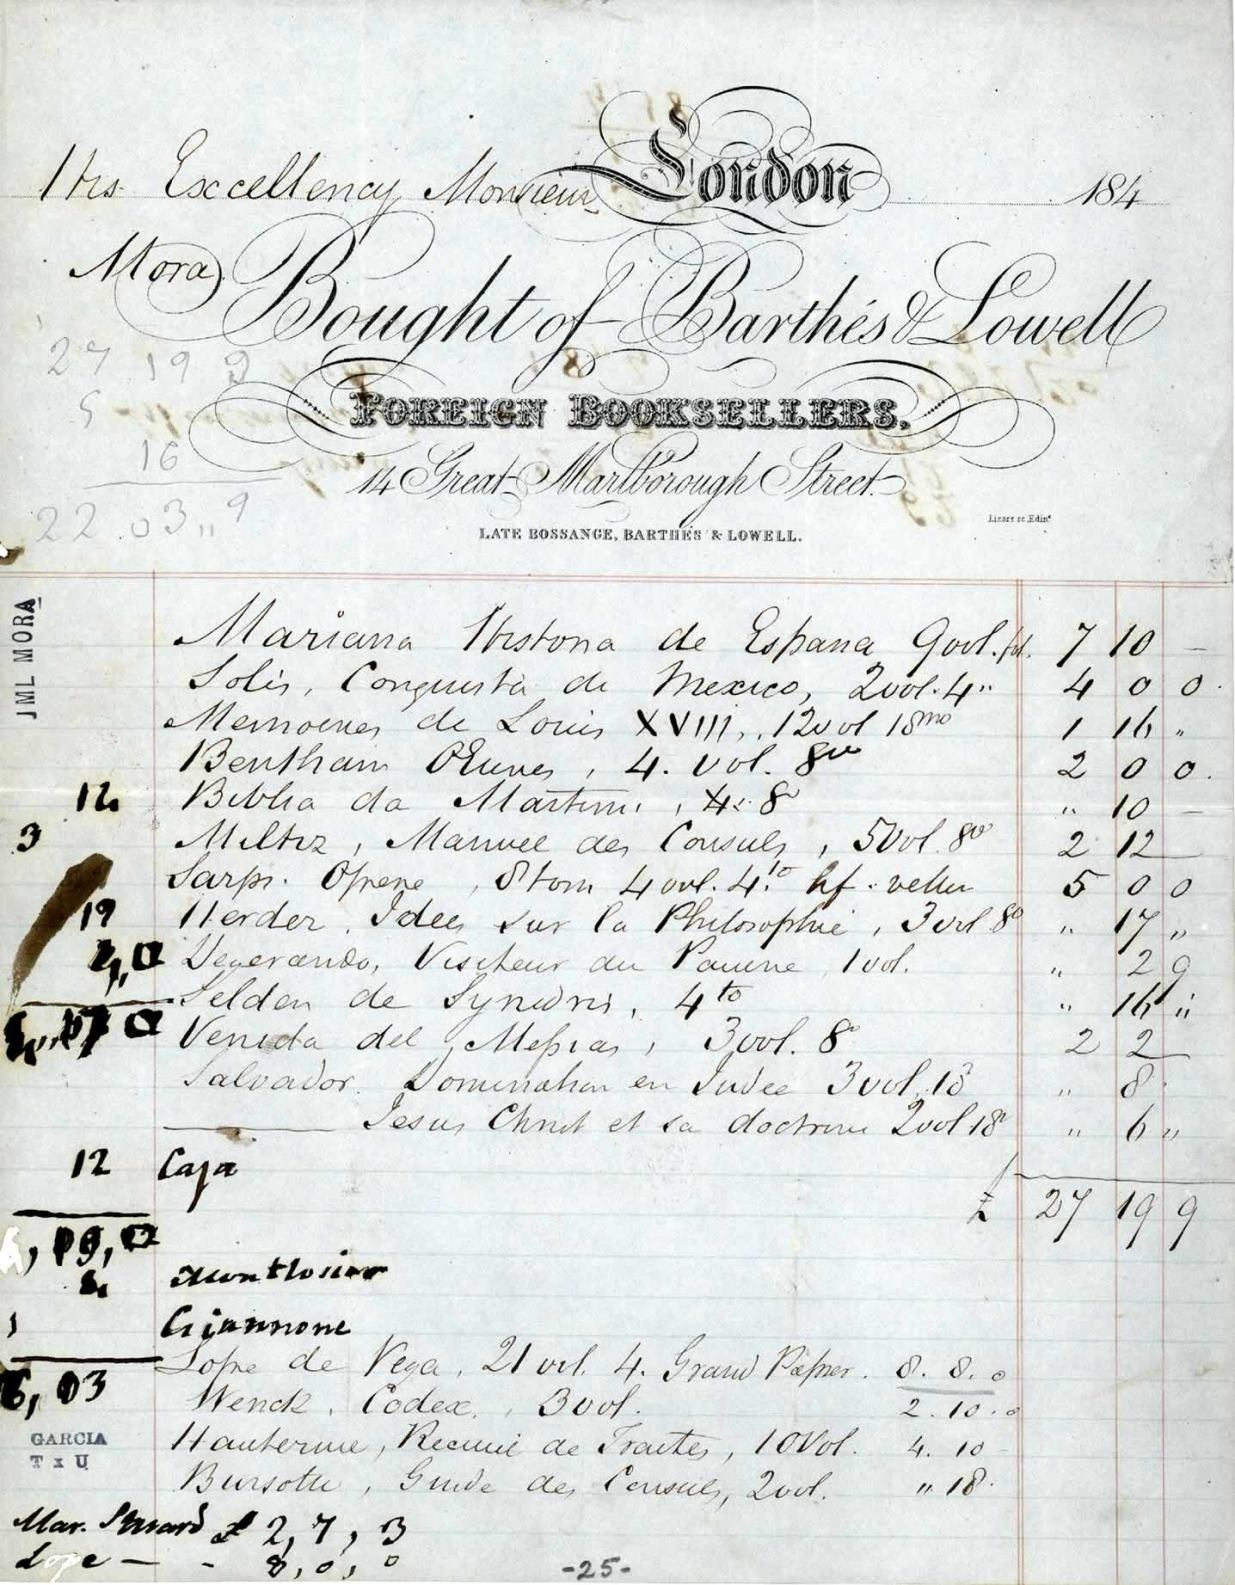 His Excellency Monsieur London 184
Mora
Bought of Barthés & Lowell
27 19 9
FOREIGN BOOKSELLERS.
5
16
14 Great Marlborough Street.
22.03 „ 9
Lizars sc. Edinr
LATE BOSSANGE, BARTHÉS & LOWELL.
JML MORA
Mariana Historia de Espana 9 vol. fol. 7 10 —
Solis, Conquista de Mexico, 2 vol. 4" 4 0 0.
Memoires de Louis XVIII, 12 vol 18mo 1 16 "
Bentham Œuvres, 4. vol. 8vo 2 0 0.
12 Biblia da Martini, 8o " 10 —
3 Miltiz, Manuel des Consuls, 5 vol. 8vo 2 12 —
Sarpi. Opere, 8 tom 4 vol. 4to hf. vellum 5 0 0
19 Herder, Idees sur la Philosophie, 3 vol 8o " 17 "
Degerando, Visiteur du Pauvre 1 vol. " 2 9
Selden de Synedris, 4to " 16 "
Venida del Messias, 3 vol. 8o 2 2 —
Salvador. Domination en Judée 3 vol. 18 " 8
——— Jesus Christ et sa doctrine 2 vol 18o " 6 "
12 Caja
£ 27 19 9
Montlosier
Giannone
Lope de Vega, 21 vol. 4. Grand Papier. 8. 8. 0
Wenck, Codex, 3 vol. 2. 10. 0
03
GARCIA
TxU
Hauterive, Recueil de Traités, 10 Vol. 4. 10 -
Bursotti, Guide des Consuls, 2 vol. " 18.
Mar. £ 2, 7, 3
Lope — - 8, 0, 0
-25-